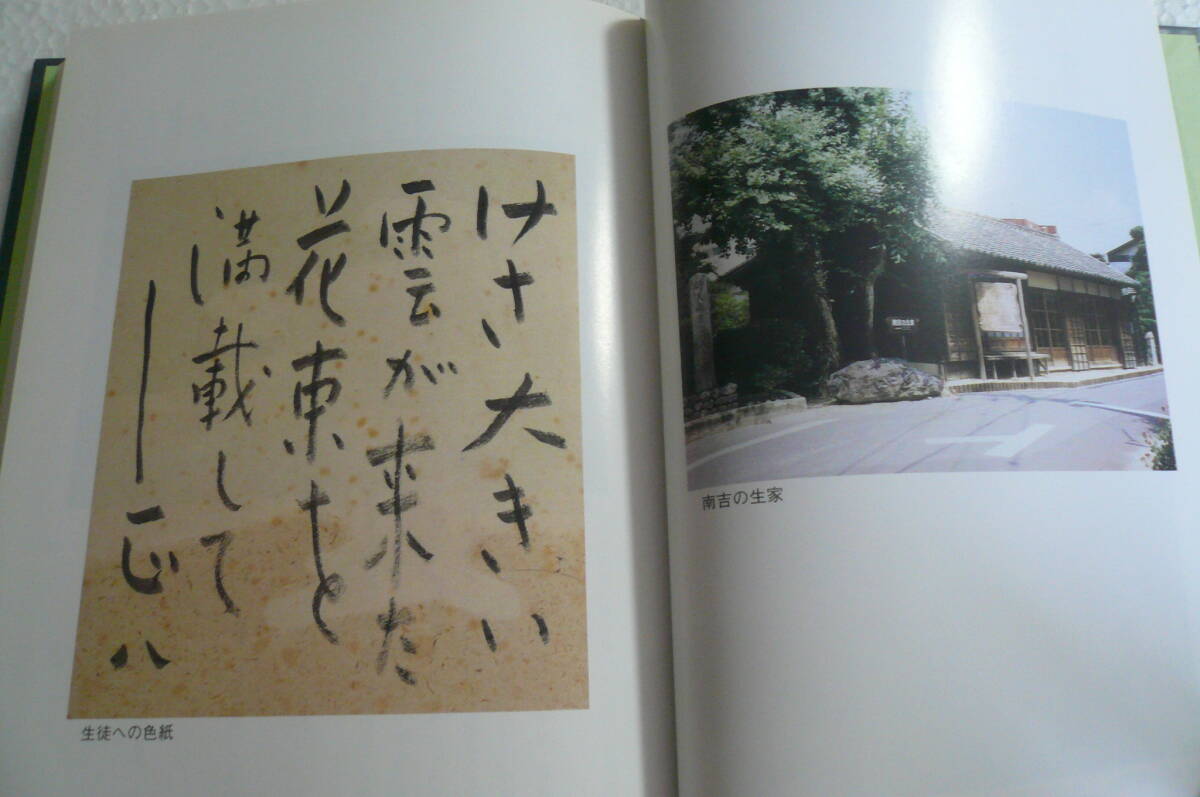 けさ大きい
雲が来た
花束を
満載して
—正八
生徒への色紙
南吉の生家